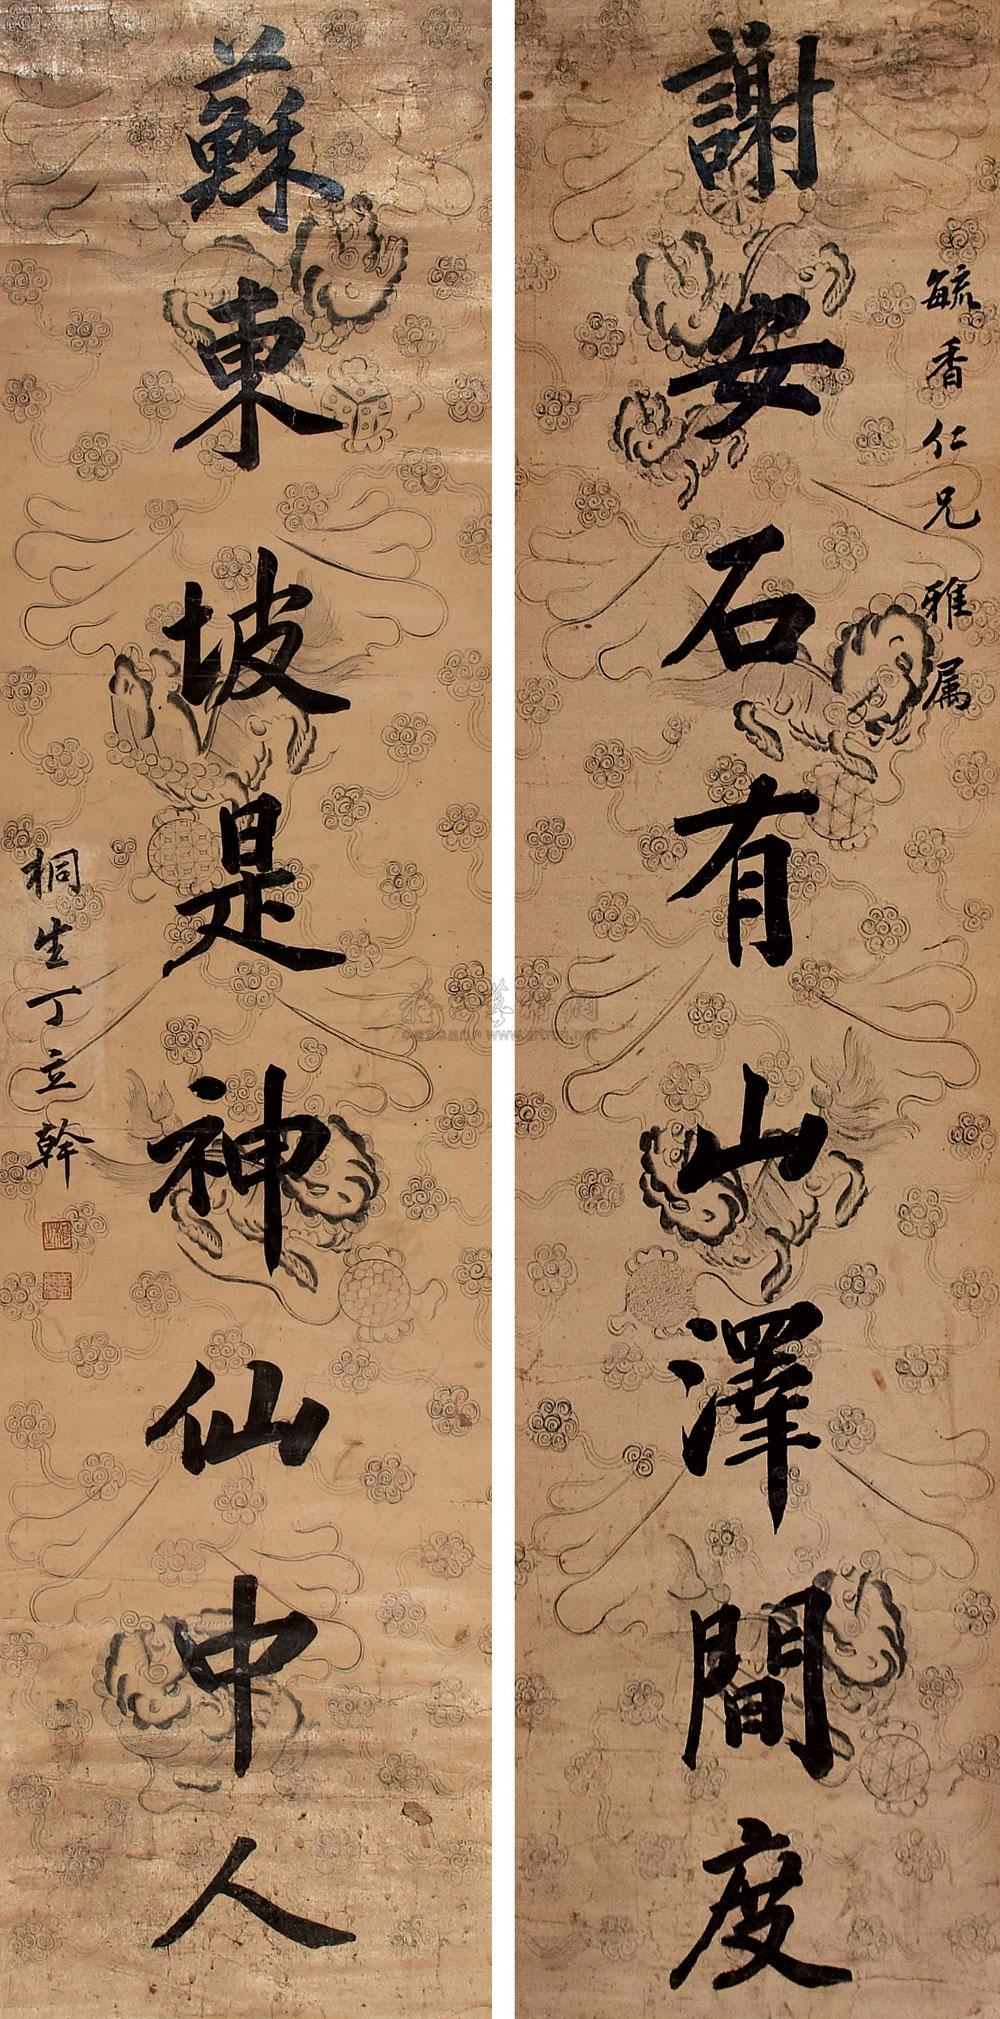 毓香仁兄雅属
謝安石有山澤間度
蘇東坡是神仙中人
桐生丁立幹